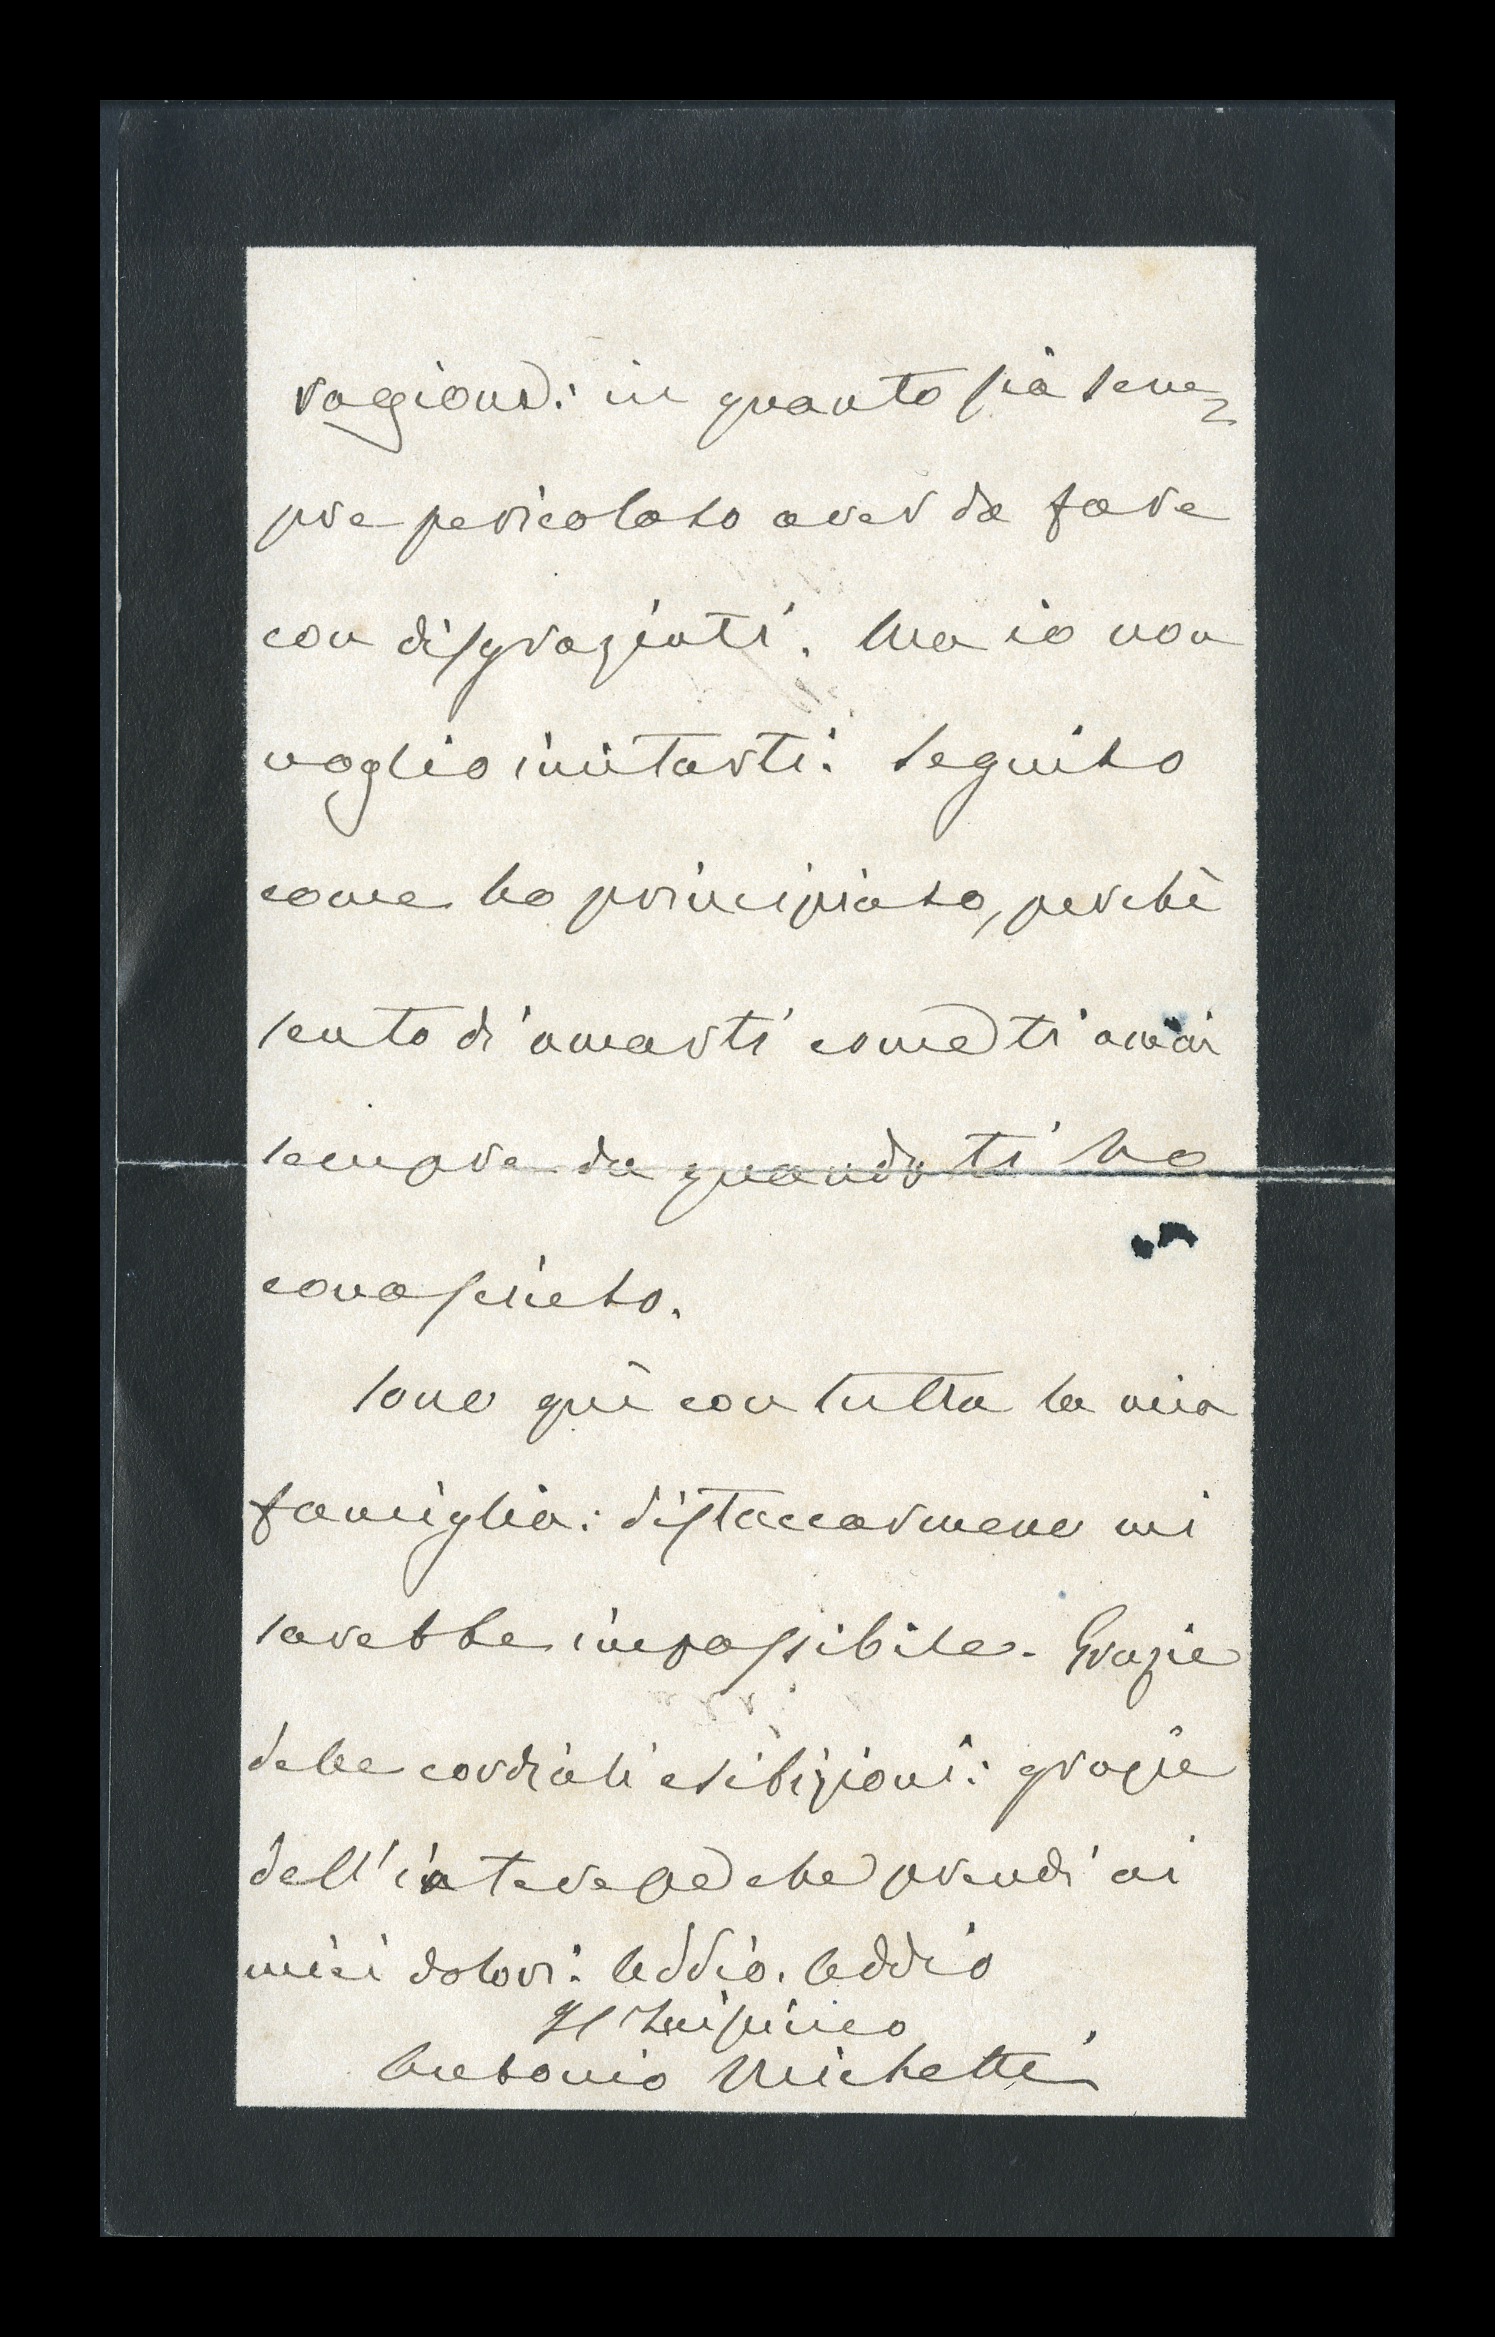 ragione: in quanto sia sem=
pre pericoloso aver da fare
con disgraziati. Ma io non
voglio imitarti. Seguito
come ho principiato, perchè
sento di amarti come ti amai
sempre da quando ti ho
conosciuto.
Sono quì con tutta la mia
famiglia: distaccarmene mi
sarebbe impossibile. Grazie
delle cordiali esibizioni: grazie
dell'interesse che prendi ai
miei dolori. Addio. Addio
Il
Antonio Michetti